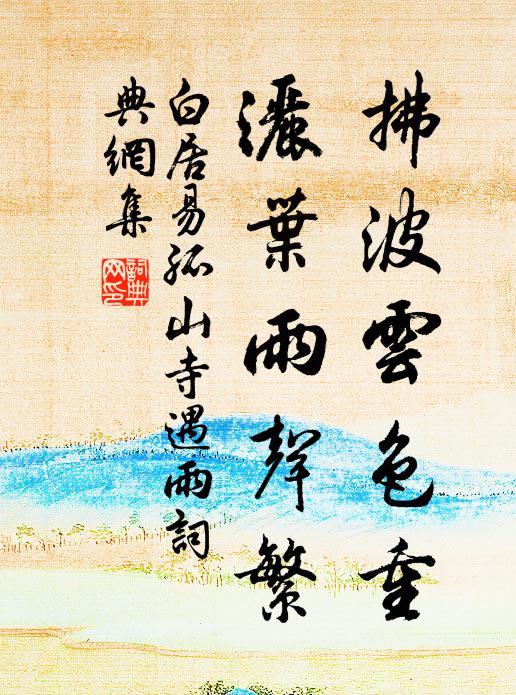 拂波雲色重
灑葉雨聲繁
白居易孤山寺遇雨詞
典網集
詞典
网印